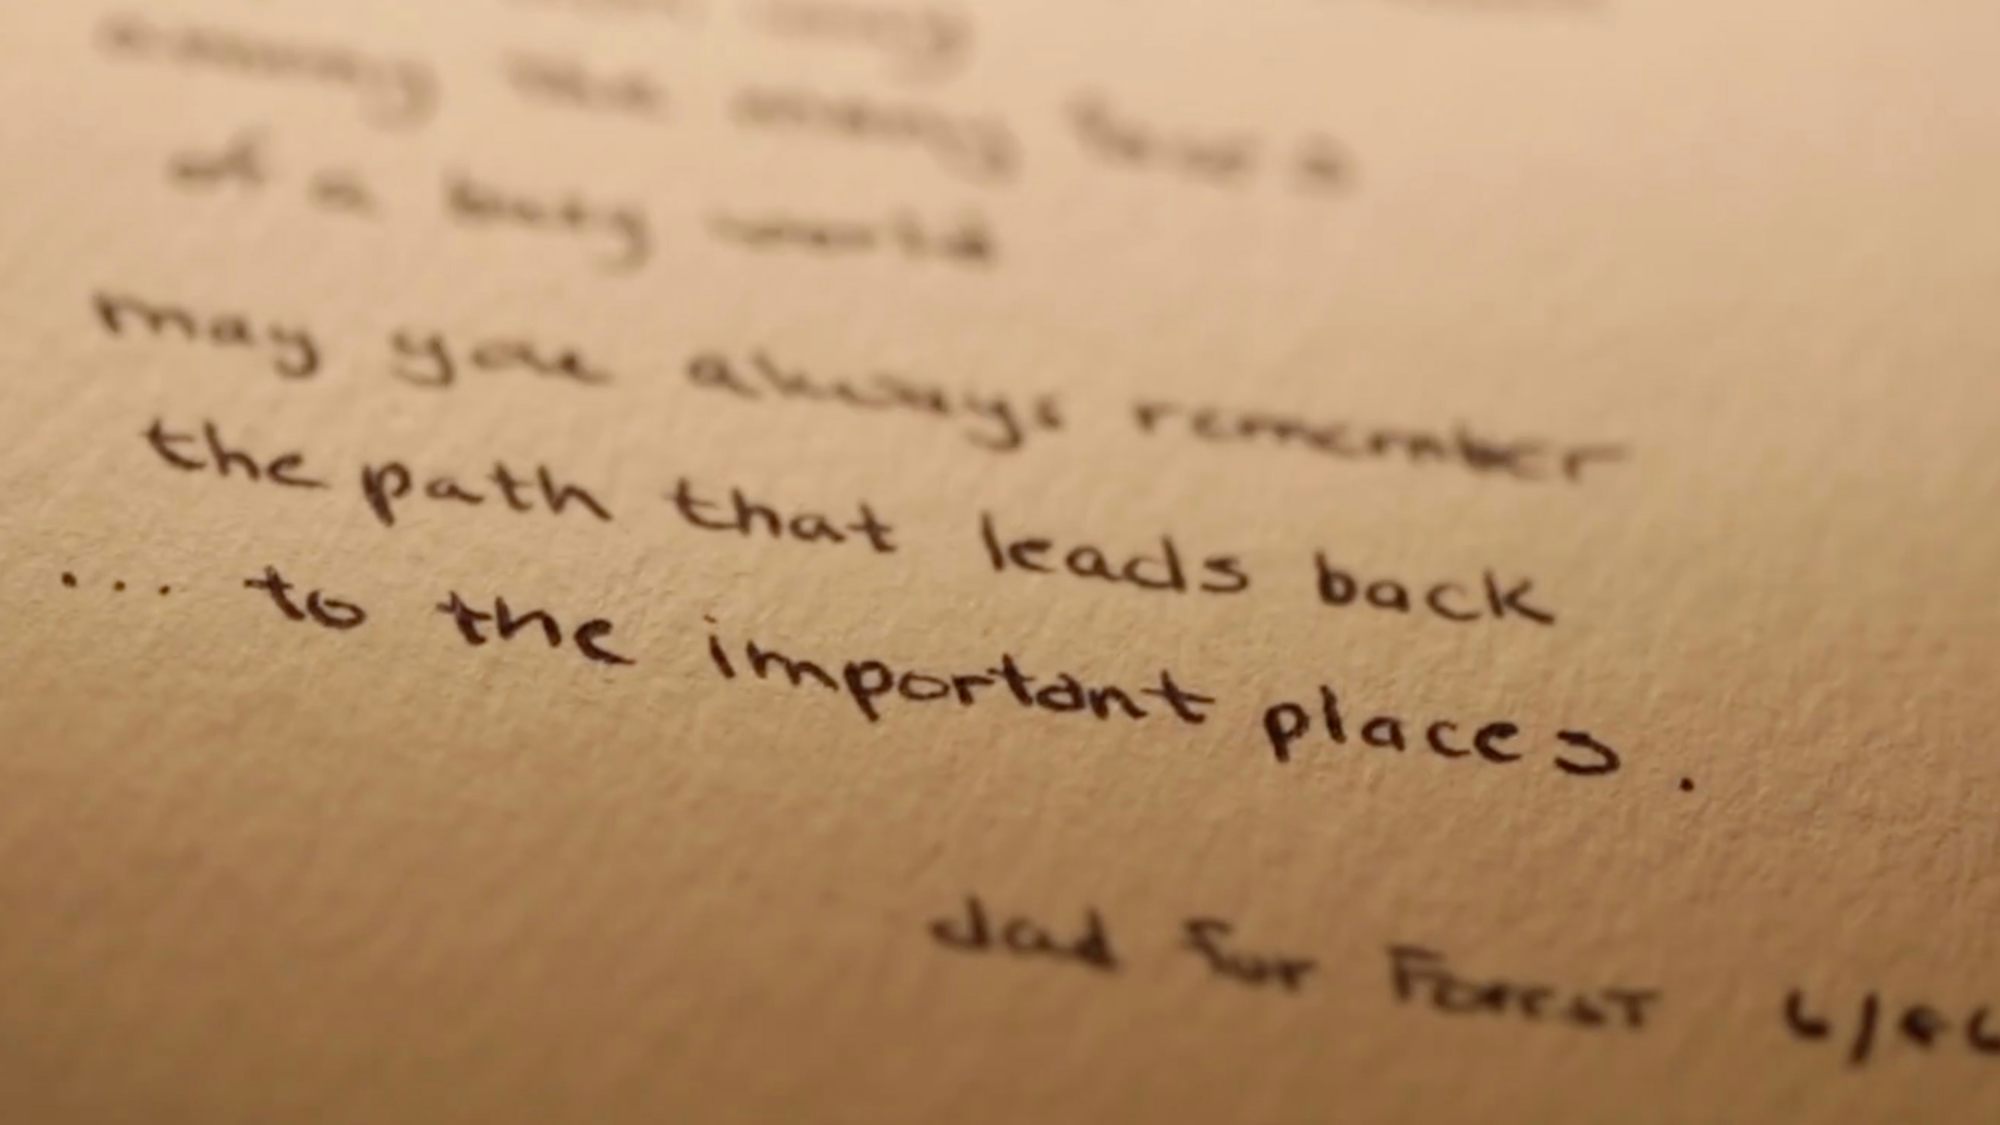 among the many
of a busy world
may you always remember
the path that leads back
... to the important places.
dad for Forrest